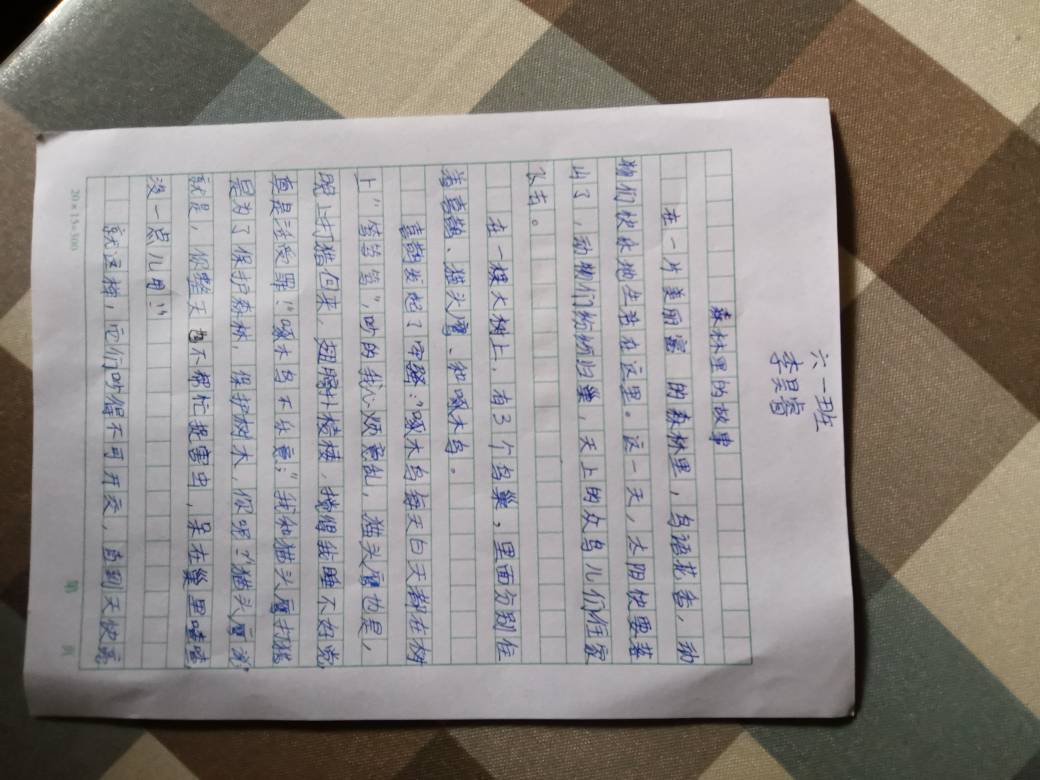 六一班
李昊睿
森林里的故事
在一片美丽富的森林里，鸟语花香，动
物们快快地生活在这里。这一天，太阳快要落
山了，动物们纷纷归巢，天上的众鸟儿们往家
飞去。
在一棵大树上，有3个鸟巢，里面分别住
着喜鹊、猫头鹰、和啄木鸟。
喜鹊发起了牢骚：“啄木鸟每天白天都在树
上“笃笃笃”，吵的我心烦意乱，猫头鹰也是，
晚上打猎回来，翅膀扑棱棱，搅得我睡不好觉
真是活受罪！”啄木鸟不乐意：“我和猫头鹰打猎
是为了保护森林，保护树木，你呢？”猫头鹰说
就是，你整天也不帮忙捉害虫，呆在巢里喳喳
没一点儿用！”
就这样，它们吵得不可开交，直到天快亮
20×15=300
第 页